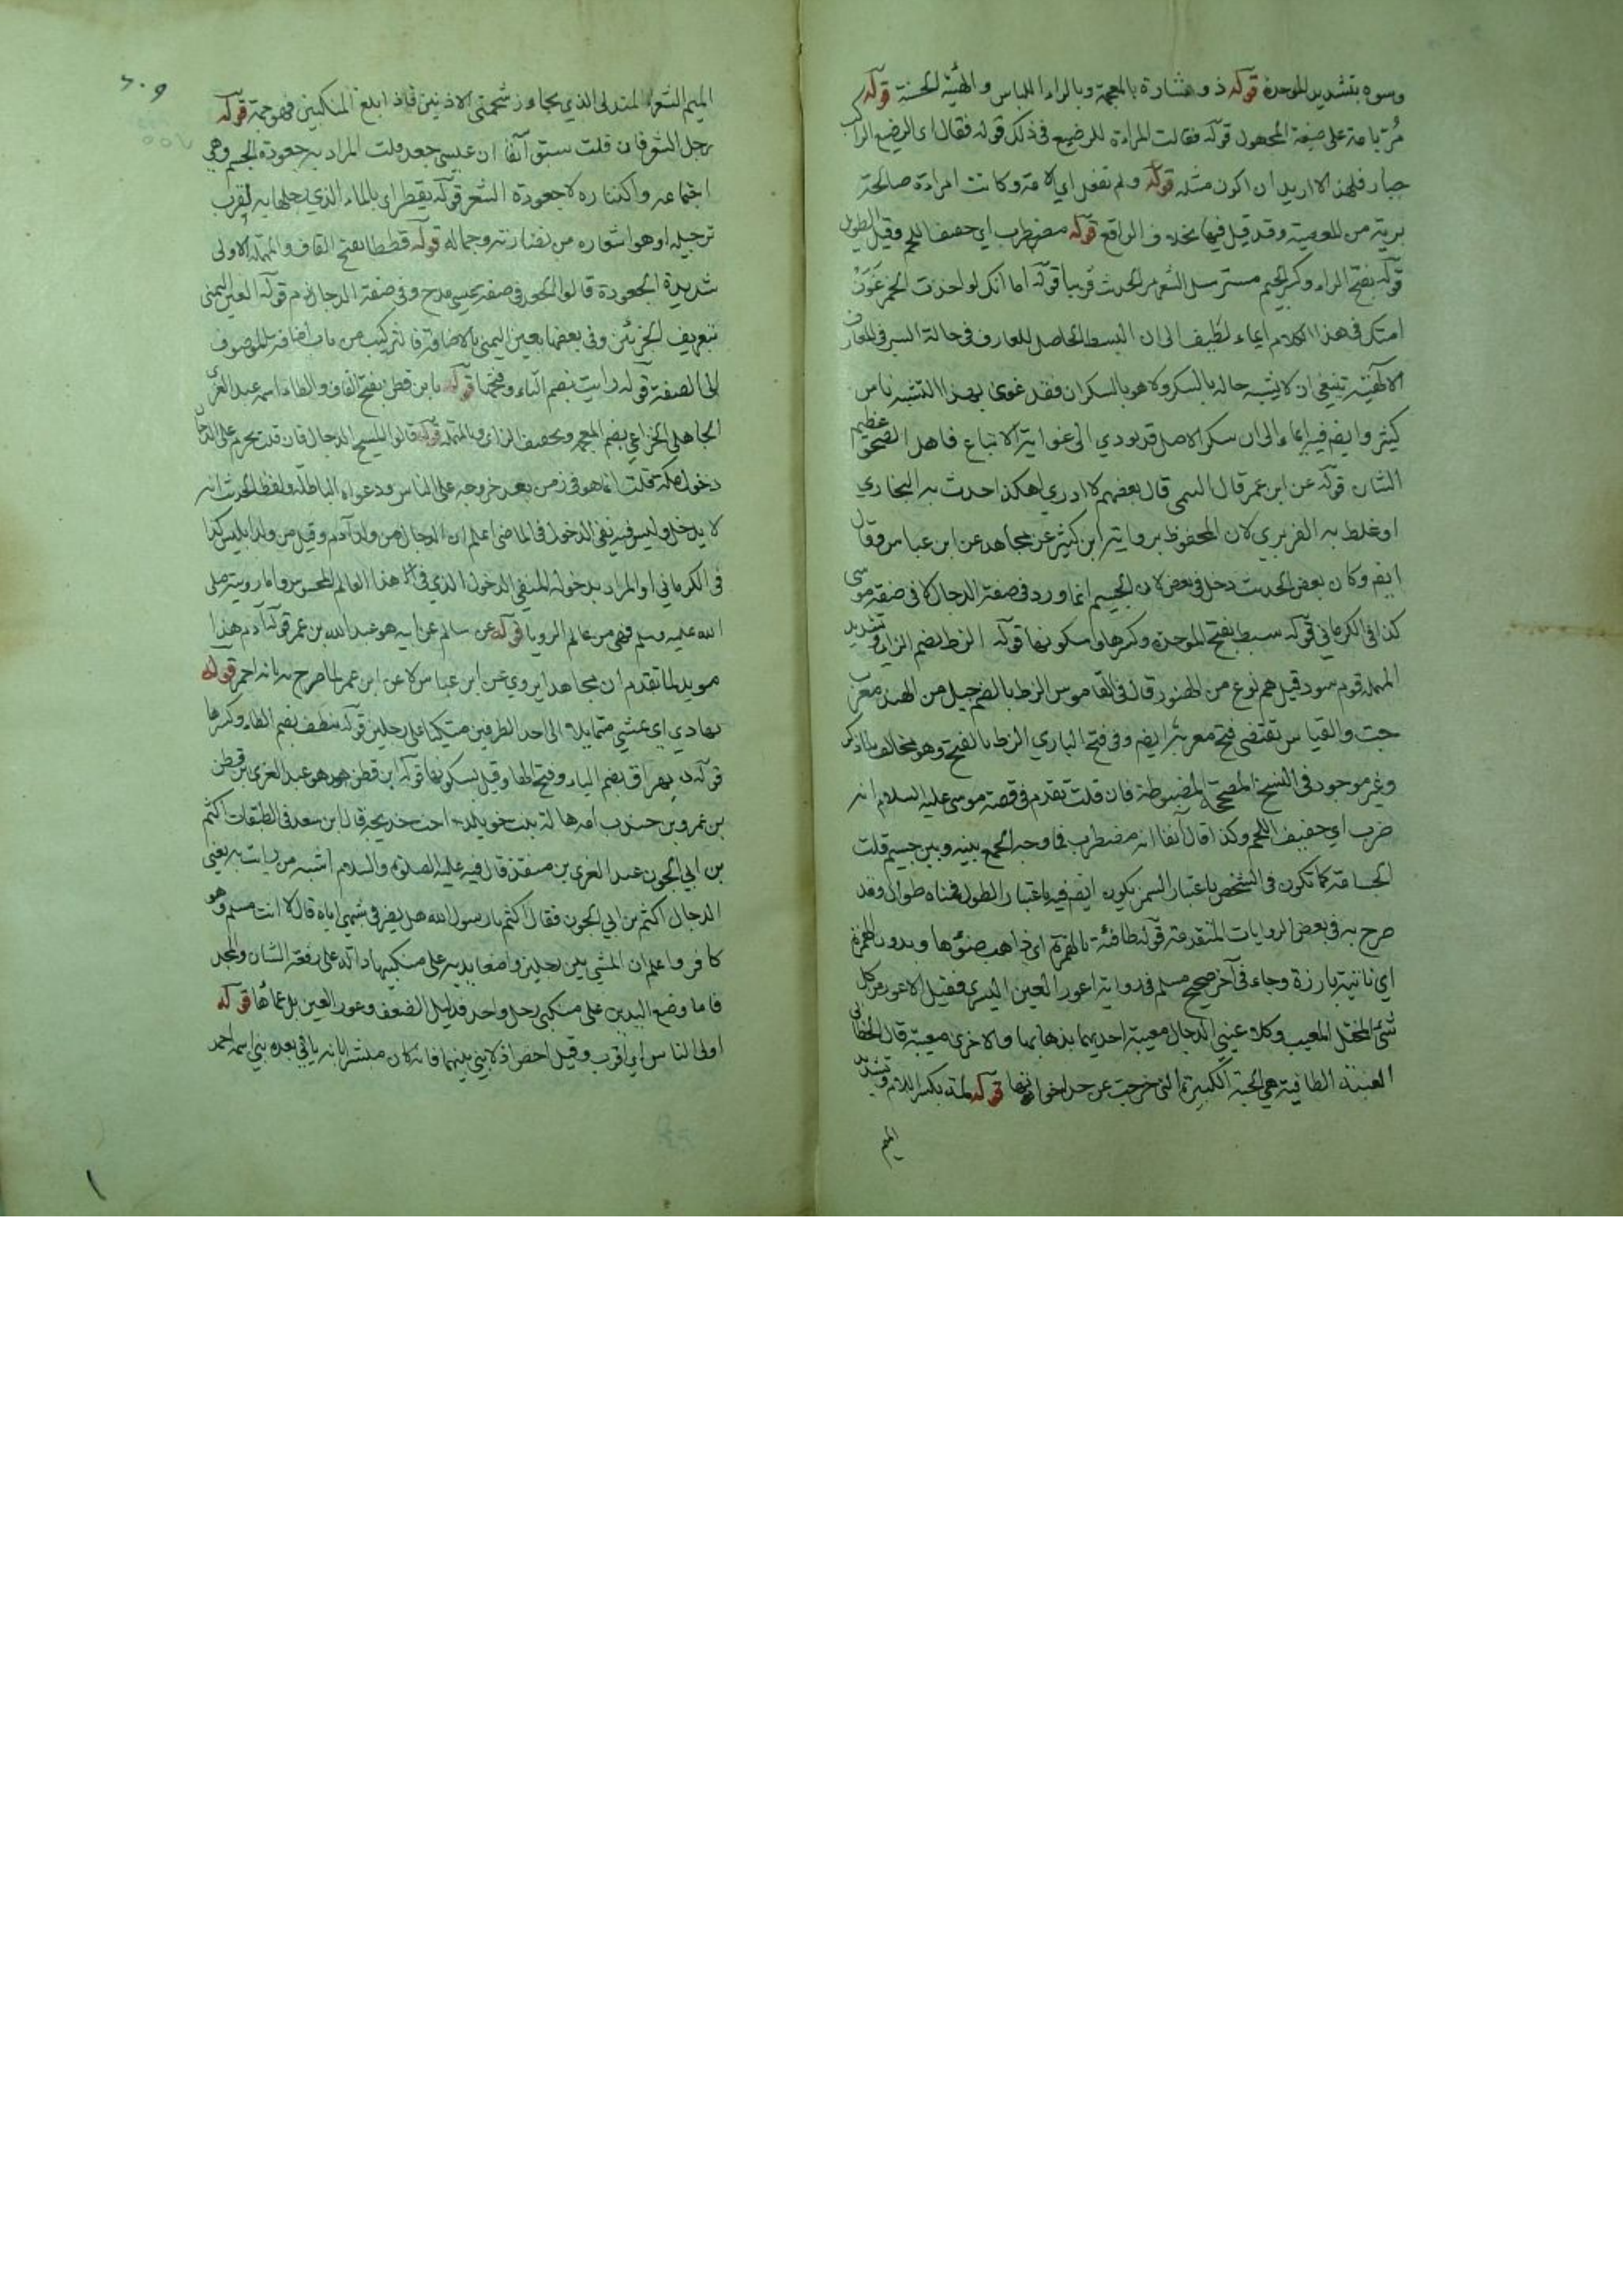 وسوه بتشديد الموحدة قوله ذو شارة بالمعجمة وبالراء اللباس والهيئة الحسنة قوله
مر بامة على صيغة المجهول قوله فقالت المراءة للرضيع في ذلك قوله فقال اى الرضيع الراكب
جبار فلهذا لا اريد ان اكون مثله قوله ولم تفعل اي الامة وكانت امراءة صالحة
برية من المعصية وقد قيل فيها بخلاف الواقع قوله مضطرب اي خفيف اللحم وقيل الطويل
قوله بفتح الراء وكسر الجيم مسترسل الشعر مر الحديث قريبا قوله اما انك لو اخذت الخمر غوت
امتك في هذا الكلام ايماء لطيف الى ان البسط الحاصل للعارف في حالة السير في المعارف
الالهية ينبغي ان لا يشبه حاله بالسكر ولا هو بالسكران فقد غوى بهذا التشبه ناس
كثير وايضا فيه ايماء الى ان سكر الاصل قد يودي الى غواية الاتباع فاهل الصحو عظيم
الشان قوله عن ابن عمر قال قال بعضهم لا ادري اهكذا حدث به البخاري
او غلط به الفربري لان المحفوظ برواية ابن كثير عن مجاهد عن ابن عباس وقال
ايضا وكان بعض الحديث دخل في بعض لان الجسيم انما ورد في صفة الدجال لا في صفة موسى
كذا في الكرماني قوله سبط بفتح الموحدة وكسرها وسكونها قوله الزط بضم الزاء وتشديد
المهملة قوم سود قيل هم نوع من الهنود قال في القاموس الزط بالضم جيل من الهند معرب
جت والقياس تقتضى فتح معربه ايضا وفي فتح الباري الزط بالفتح وهو مخالف لما ذكر
وغير موجود في النسخ المصححة المضبوطة فان قلت تقدم في قصة موسى عليه السلام انه
ضرب اي خفيف اللحم وكذا قال آنفا انه مضطرب فما وجه الجمع بينه وبين جسيم قلت
الجسامة كما تكون في الشخص باعتبار السمن يكون ايضا فيه باعتبار الطول فمعناه طوال وقد
صرح به في بعض الروايات المتقدمة قوله طافئة بالهمزة اى ذاهب ضوئها وبدون الهمزة
اي ناتية بارزة وجاء في آخر صحيح مسلم في رواية اعور العين اليسرى فقيل الاعور من كل
شئ المختل المعيب وكلا عيني الدجال معيبة احديهما بذهابها والاخرى معيبة قال الخطابي
العنبة الطافية هي الحبة الكبيرة التي خرجت عن حد اخواتها قوله لمته بكسر اللام وتشديد
الميم
٦٠٩
الميم الشعر المتدلى الذي يجاوز شحمتي الاذنين فاذا بلغ المنكبين فهو جمة قوله
رجل الشعر فان قلت سبق آنفا ان عيسى جعد قلت المراد به جعودة الجسم وهي
اجتماعه واكتنازه لا جعودة الشعر قوله يقطر اى بالماء الذي رجلها به لقرب
ترجيله او هو استعارة من نضارته وجماله قوله قططا بفتح القاف والمهملة الاولى
شديدة الجعودة قالوا الجعد في صفة عيسى مدح وفي صفة الدجال ذم قوله العين اليمنى
بتعريف الجزئين وفي بعضها بعين اليمنى بالاضافة فالتركيب من باب اضافة الموصوف
الى الصفة قوله رايت بضم التاء وفتحها قوله بابن قطن بفتح القاف والطاء اسمه عبد العزى
الجاهلي الخزاعي بضم المعجمة وتخفيف الزاى وبالمهملة قوله قالوا المسيح الدجال فان قلت يحرم على الدجال
دخول مكة قلت انما هو في زمن بعد خروجه على الناس ودعواه الباطلة ولفظ الحديث انه
لا يدخل وليس فيه نفي الدخول في الماضي اعلم ان الدجال من ولد آدم وقيل من ولد ابليس كذا
في الكرماني او المراد بدخوله المنفي الدخول الذي في هذا العالم المحسوس واما رويته صلى
الله عليه وسلم فهي من عالم الرويا قوله عن سالم عن ابيه هو عبد الله بن عمر قوله آدم هذا
مويد لما تقدم ان مجاهدا يروي عن ابن عباس لا عن ابن عمر لما صرح به بانه احمر قوله
يهادي اي يمشي متمايلا الى احد الطرفين متكيا على رجلين قوله ينطف بضم الطاء وكسرها
قوله يهراق بضم الياء وفتح الهاء وقيل بسكونها قوله ابن قطن هو عبد العزى بن قطن
بن عمرو بن جندب امه هالة بنت خويلد اخت خديجة قال ابن سعد في الطبقات اكثم
بن ابي الجون عبد العزى بن منقذ قال فيه عليه الصلوة والسلام اشبه من رايت به يعني
الدجال اكثم بن ابي الجون فقال اكثم يا رسول الله هل يضرني شبهي اياه قال لا انت مسلم وهو
كافر واعلم ان المشي بين رجلين واضعا يديه على منكبيهما دالة على رفعة الشان والمجد
فاما وضع اليدين على منكبي رجل واحد فدليل الضعف وعور العين بل عماها قوله
اولى الناس اي اقرب وقيل اخص اذ لا نبي بينهما فانه كان مبشرا بانه ياتي بعده نبي اسمه احمد